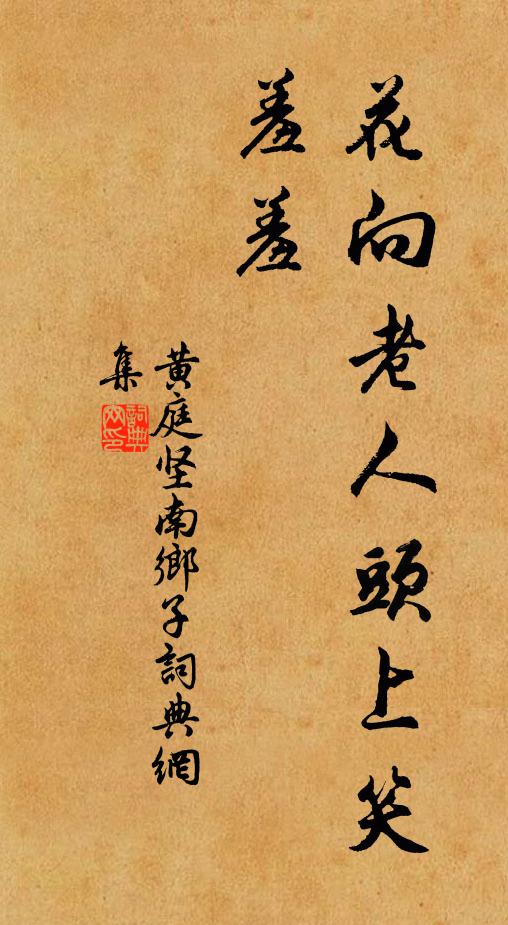 花向老人頭上笑
羞羞
黄庭坚南鄉子詞典網
集
詞典
网印